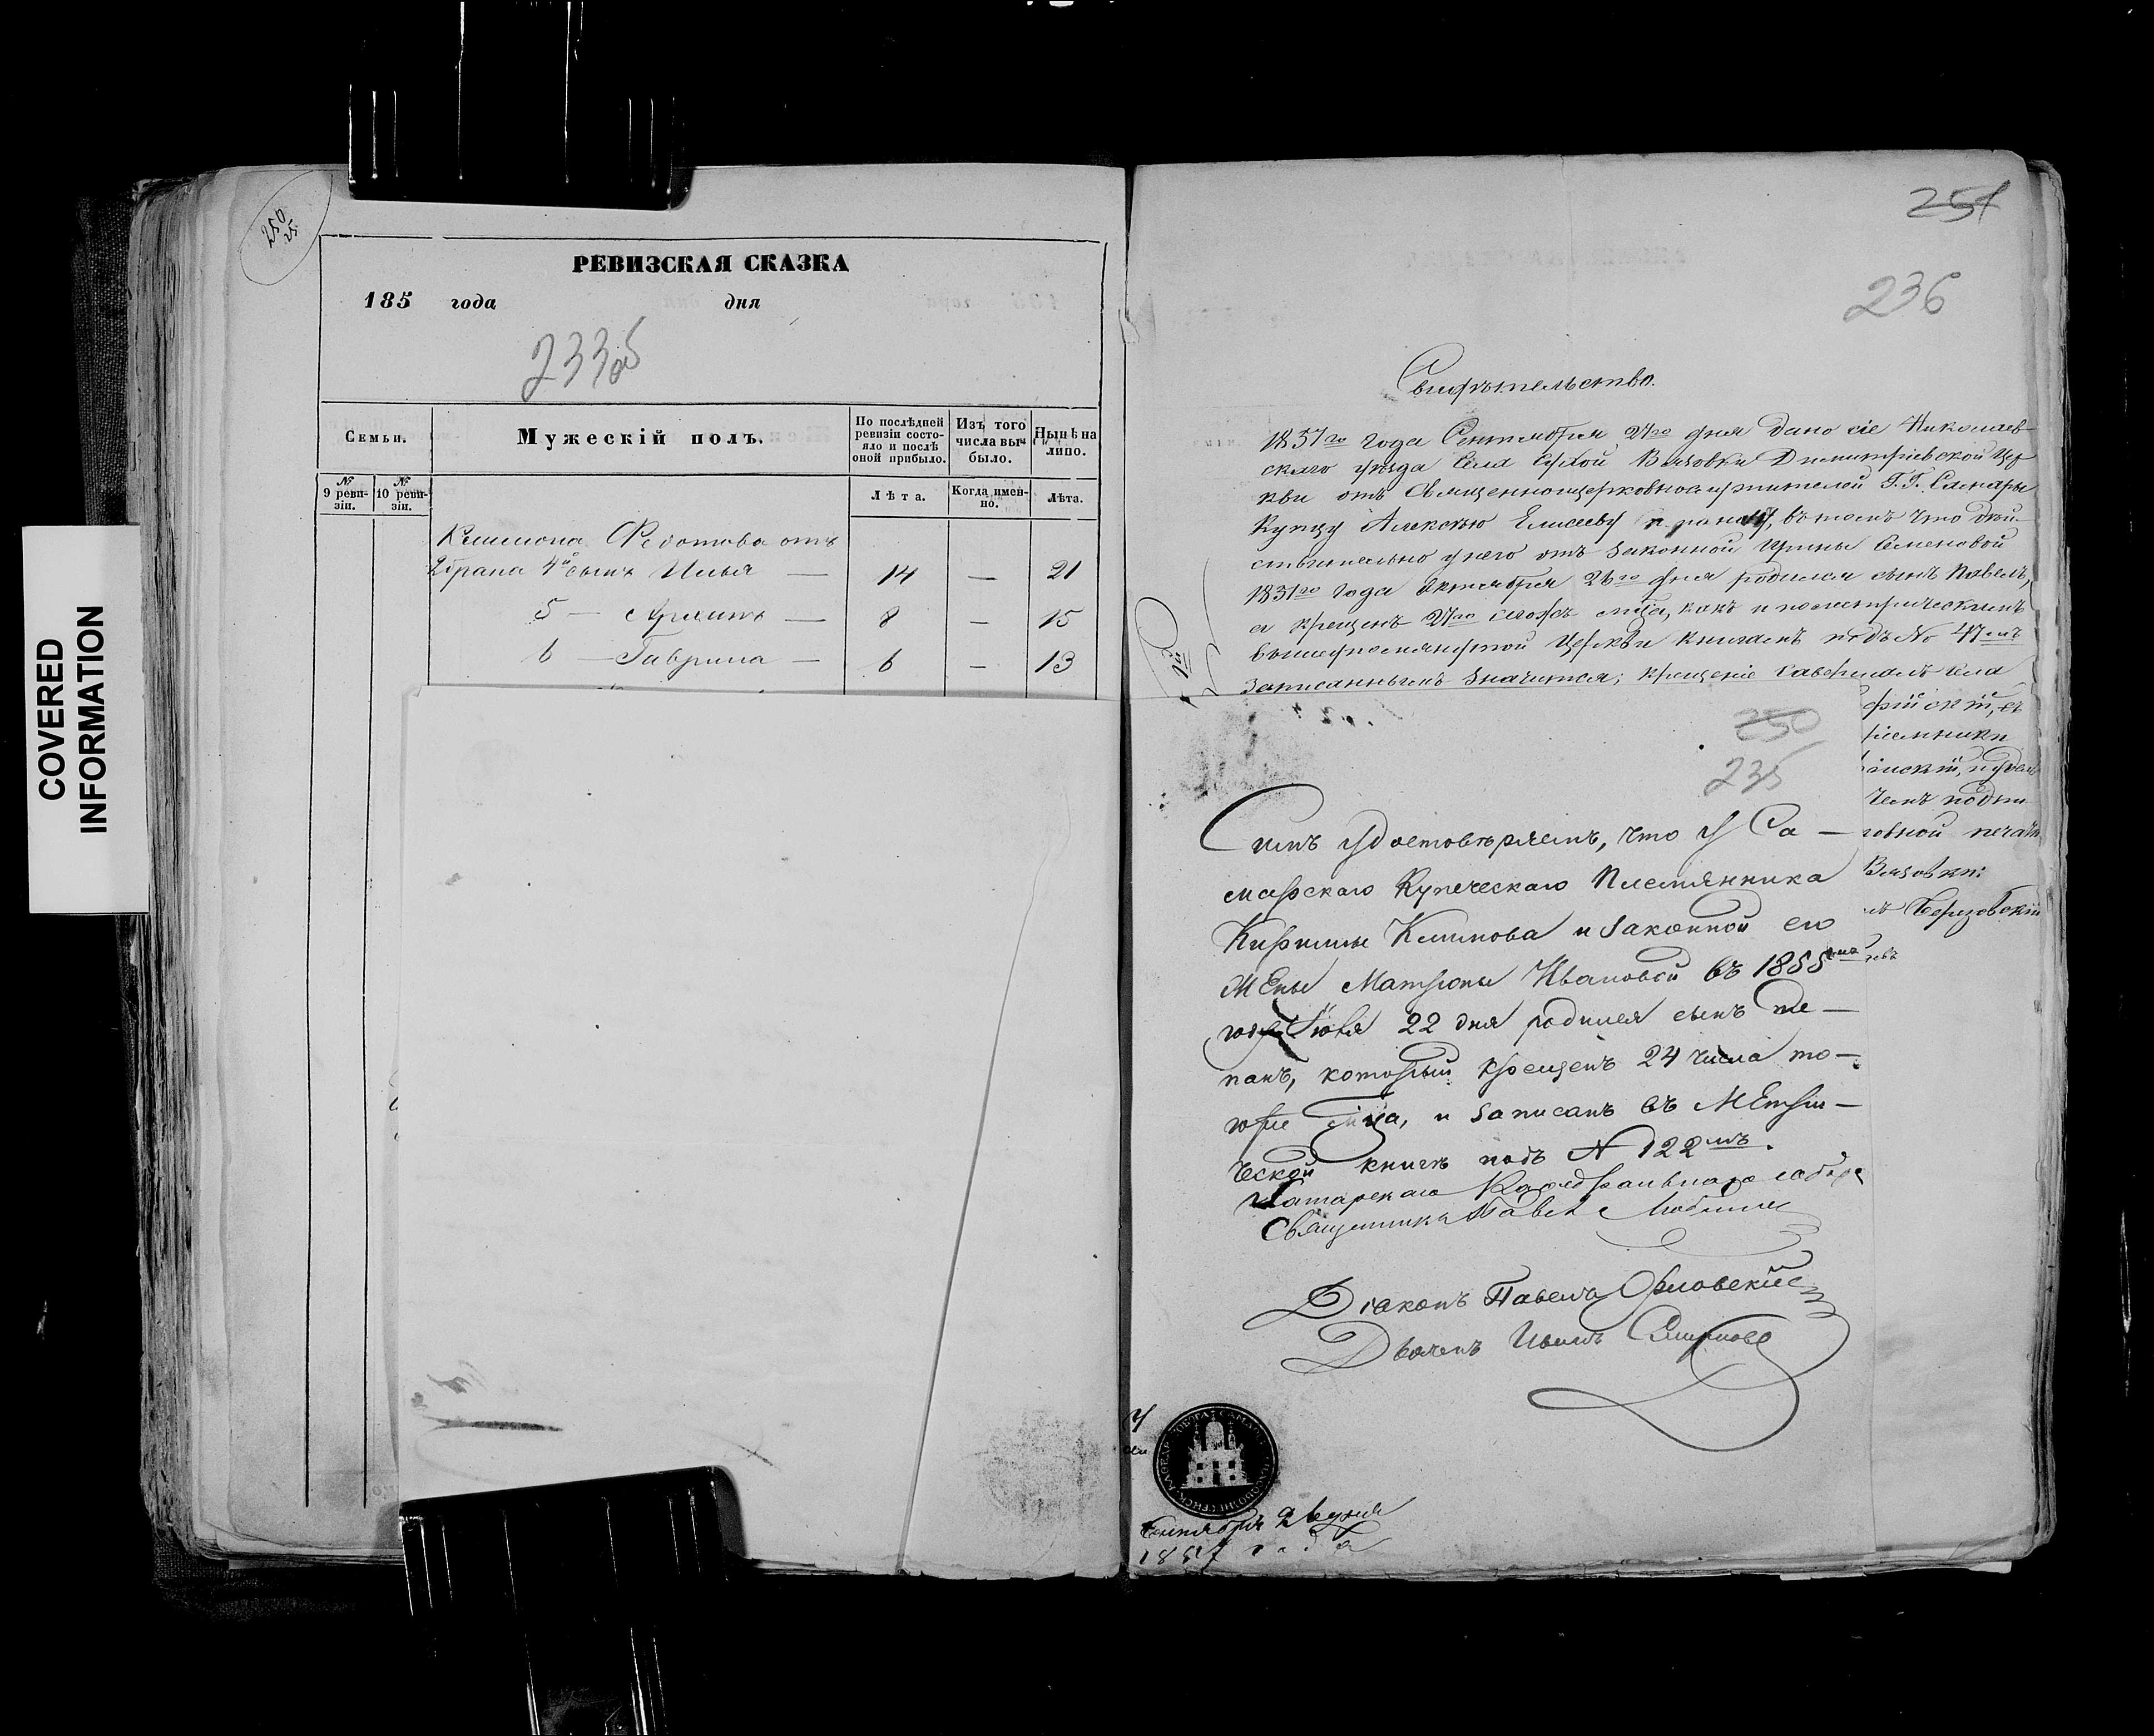 COVERED
INFORMATION
250
РЕВИЗСКАЯ СКАЗКА
185 года дня
233 об
Семьи.
Мужескій полъ.
По послѣдней ревизіи состояло и послѣ оной прибыло.
Изъ того числа выбыло.
Нынѣ на лицо.
№ 9 ревизіи.
№ 10 ревизіи.
Лѣта.
Когда именно.
Лѣта.
Федотова отъ
2 брака 4й сынъ Илья — 14 — 21
5 — Архипъ — 8 — 15
6 — Гаврила — 6 — 13
251
236
Свидѣтельство.
1857го года Сентября 27го дня дано сіе Николаев-
скаго уѣзда села Сухой Вязовки Димитріевской Цер
кви отъ Священноцерковнослужителей Г.Г. Самары
Купцу Алексѣю Елисееву въ томъ что дѣй-
ствительно у него отъ законной Ирины Семеновой
1831го года Октября 26го дня родился сынъ Павелъ,
а крещенъ 27го сегожъ мѣца, какъ и по метрическимъ
вышеупомянутой Церкви книгамъ подъ № 47мъ
записаннымъ значится; крещеніе совершалъ села
печати
Вязовки:
Березовскій
250
235
Симъ удостовѣряемъ, что у Са-
марскаго Купеческаго Племянника
Кирилы Климова и законной его
жены Матроны Ивановой въ 1855мъ
году Іюля 22 дня родился сынъ Сте-
панъ, который крещенъ 24 числа то-
гоже мѣца, и записанъ въ Метри-
ческой книгѣ подъ № 122мъ.
Самарскаго Кафедральнаго собора
Священникъ Павелъ
Діаконъ Павелъ Орловскій
Дьячекъ Смирновъ
Сентября дня
1857 года